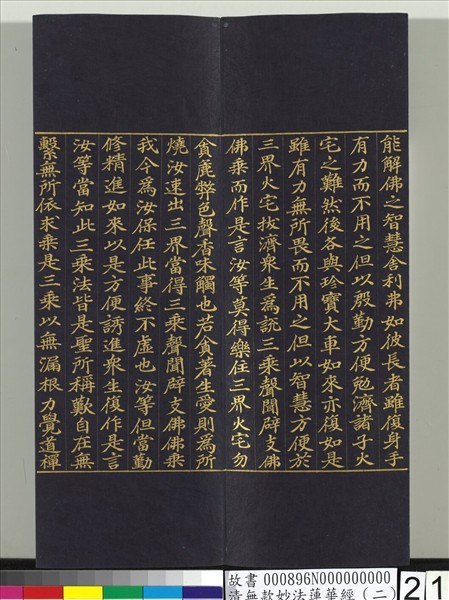 能解佛之智慧舍利弗如彼長者雖復身手
有力而不用之但以殷勤方便勉濟諸子火
宅之難然後各與珍寶大車如來亦復如是
雖有力無所畏而不用之但以智慧方便於
三界火宅拔濟衆生為說三乘聲聞辟支佛
佛乘而作是言汝等莫得樂住三界火宅勿
貪麁弊色聲香味觸也若貪著生愛則為所
燒汝速出三界當得三乘聲聞辟支佛佛乘
我今為汝保任此事終不虛也汝等但當勤
修精進如來以是方便誘進衆生復作是言
汝等當知此三乘法皆是聖所稱歎自在無
繫無所依求乘是三乘以無漏根力覺道禪
故書 000896N000000000
清無款妙法蓮華經(二)
21